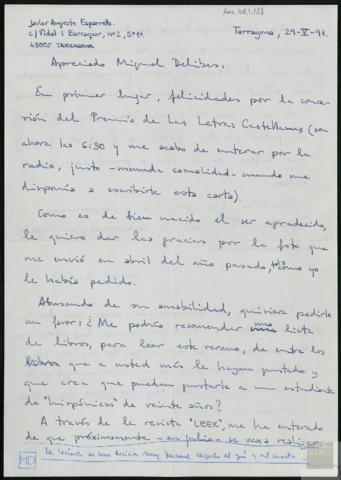 Javier Angosto Esparrells.
c/ Vidal i Barraquer, nº 2, 5º 1ª
43005 TARRAGONA
Tarragona, 29-V-91.
Apreciado Miguel Delibes:
En primer lugar, felicidades por la conce-
sión del Premio de las Letras Castellanas (son
ahora las 6:30 y me acabo de enterar por la
radio, justo -menuda casualidad- cuando me
disponía a escribirle esta carta).
Como es de bien nacido el ser agradecido,
le quiero dar las gracias por la foto que
me envió en abril del año pasado, tal y como yo
le había pedido.
Abusando de su amabilidad, quisiera pedirle
un favor: ¿Me podría recomendar una lista
de libros, para leer este verano, de entre los
libros que a usted más le hayan gustado y
que crea que puedan gustarle a un estudiante
de "hispánicas" de veinte años?
A través de la revista "LEER", me he enterado
de que próximamente -en julio- se va a realizar
MD